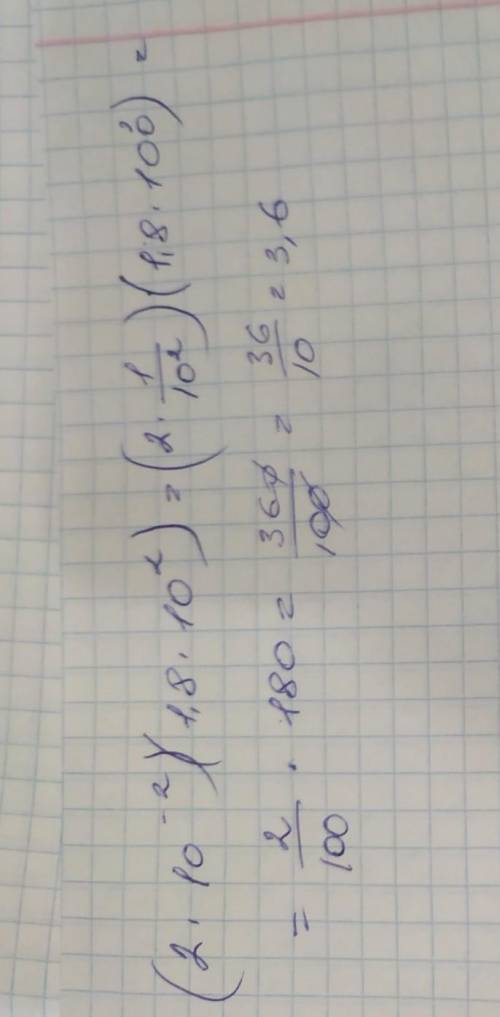 (2 · 10⁻²)(1,8 · 10²) = (2 · 1/10²)(1,8 · 100) =
= 2/100 · 180 = 360/100 = 36/10 = 3,6